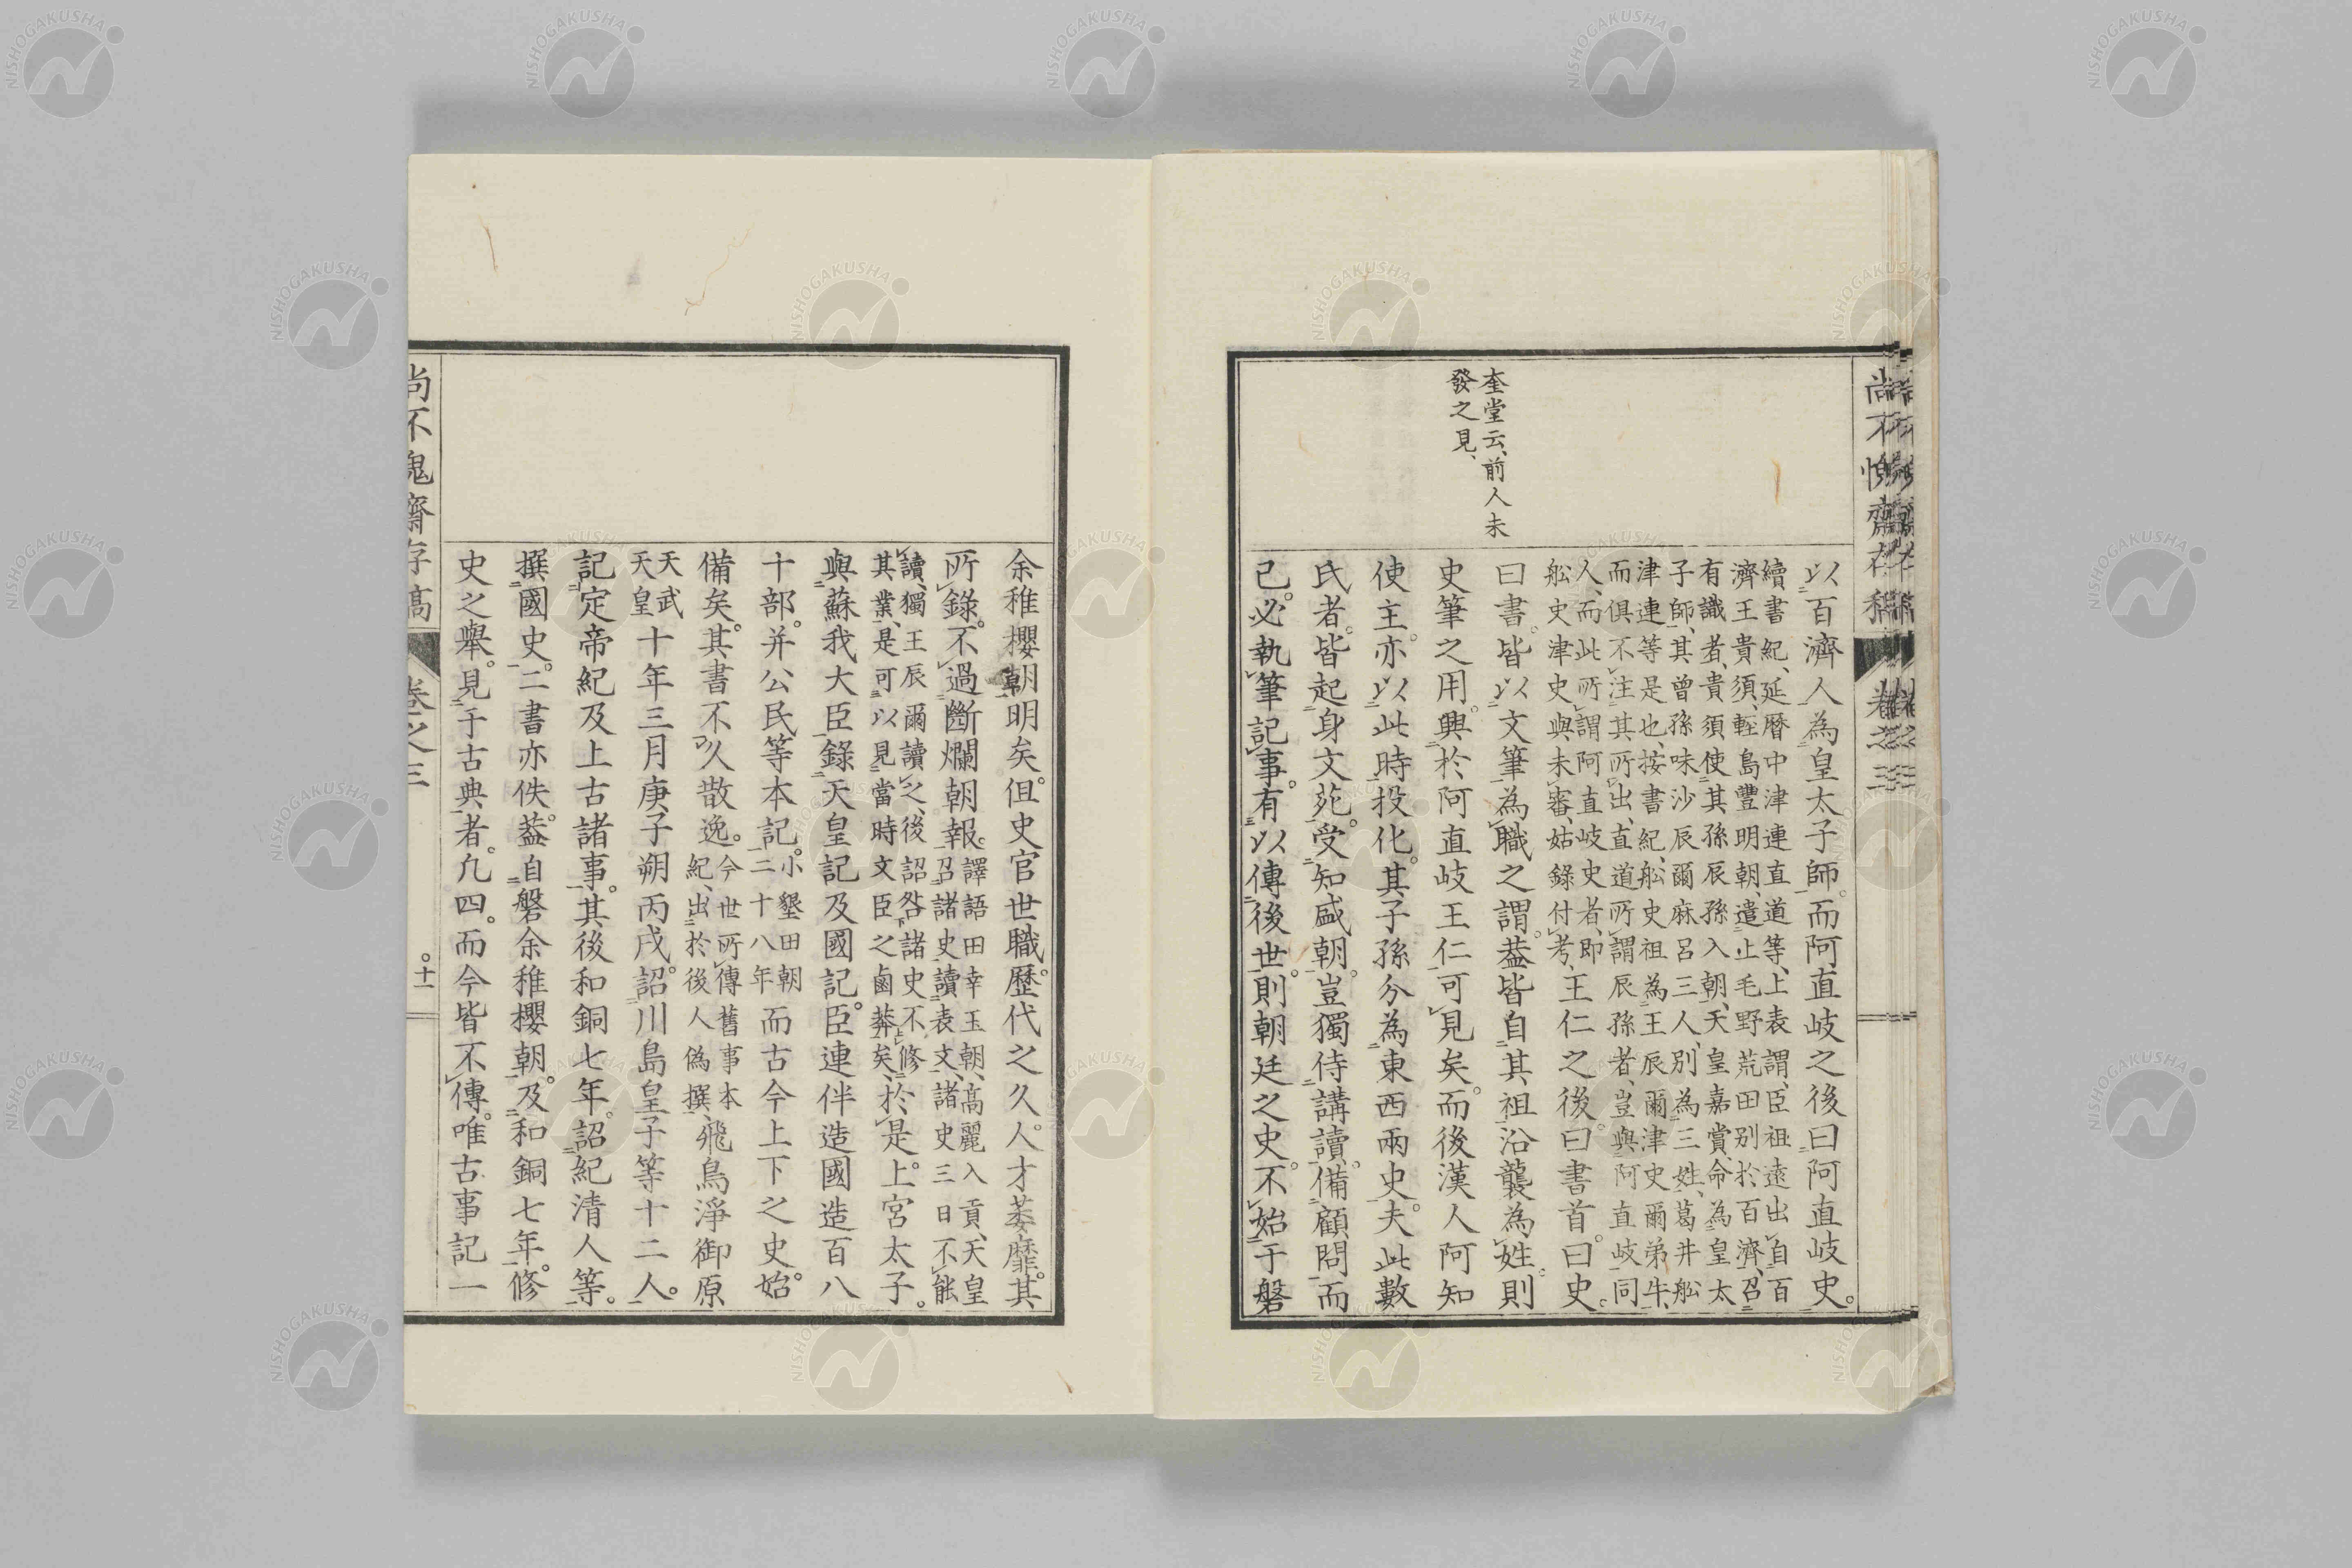 尚不愧齋存稿
卷之三
奎堂云、前人未
發之見、
以百濟人為皇太子師。而阿直岐之後曰阿直岐史。
續書紀、延暦中津連直道等、上表謂、臣祖遠出自百
濟王貴須、輕島豐明朝、遣上毛野荒田別於百濟、召
有識者、貴須使其孫辰孫入朝、天皇嘉賞、命為皇太
子師、其曾孫味沙辰爾麻呂三人、別為三姓、葛井船
津連等是也、按書紀、船史祖為王辰爾津史爾弟牛、
而俱不注其所出、直道所謂辰孫者、豈與阿直岐同
人、而此所謂阿直岐史者、即
舩史津史與未審、姑錄付考、王仁之後。曰書首。曰史。
曰書。皆以文筆為職之謂。葢皆自其祖沿襲為姓。則
史筆之用。興於阿直岐王仁可見矣。而後漢人阿知
使主。亦以此時投化。其子孫分為東西兩史。夫此數
氏者。皆起身文苑。受知盛朝。豈獨侍講讀。備顧問而
已。必執筆記事。有以傳後世。則朝廷之史。不始于磐
余稚櫻朝明矣。但史官世職。歷代之久。人才萎靡。其
所錄。不過斷爛朝報。譯語田幸玉朝、高麗入貢、天皇
召諸史讀表文、諸史三日不能
讀、獨王辰爾讀之、後詔咎諸史不修
其業、是可以見當時文臣之鹵莽矣、於是。上宮太子。
與蘇我大臣錄天皇記及國記。臣連伴造國造百八
十部。并公民等本記。小墾田朝
二十八年而古今上下之史。始
備矣。其書不久散逸。今世所傳舊事本
紀、出於後人偽撰、飛鳥淨御原
天武
天皇十年三月庚子朔丙戌。詔川島皇子等十二人。
記定帝紀及上古諸事。其後和銅七年。詔紀清人等。
撰國史。二書亦佚。葢自磐余稚櫻朝。及和銅七年。修
史之舉。見于古典者。凢四。而今皆不傳。唯古事記一
尚不愧齋存稿
卷之三
十一